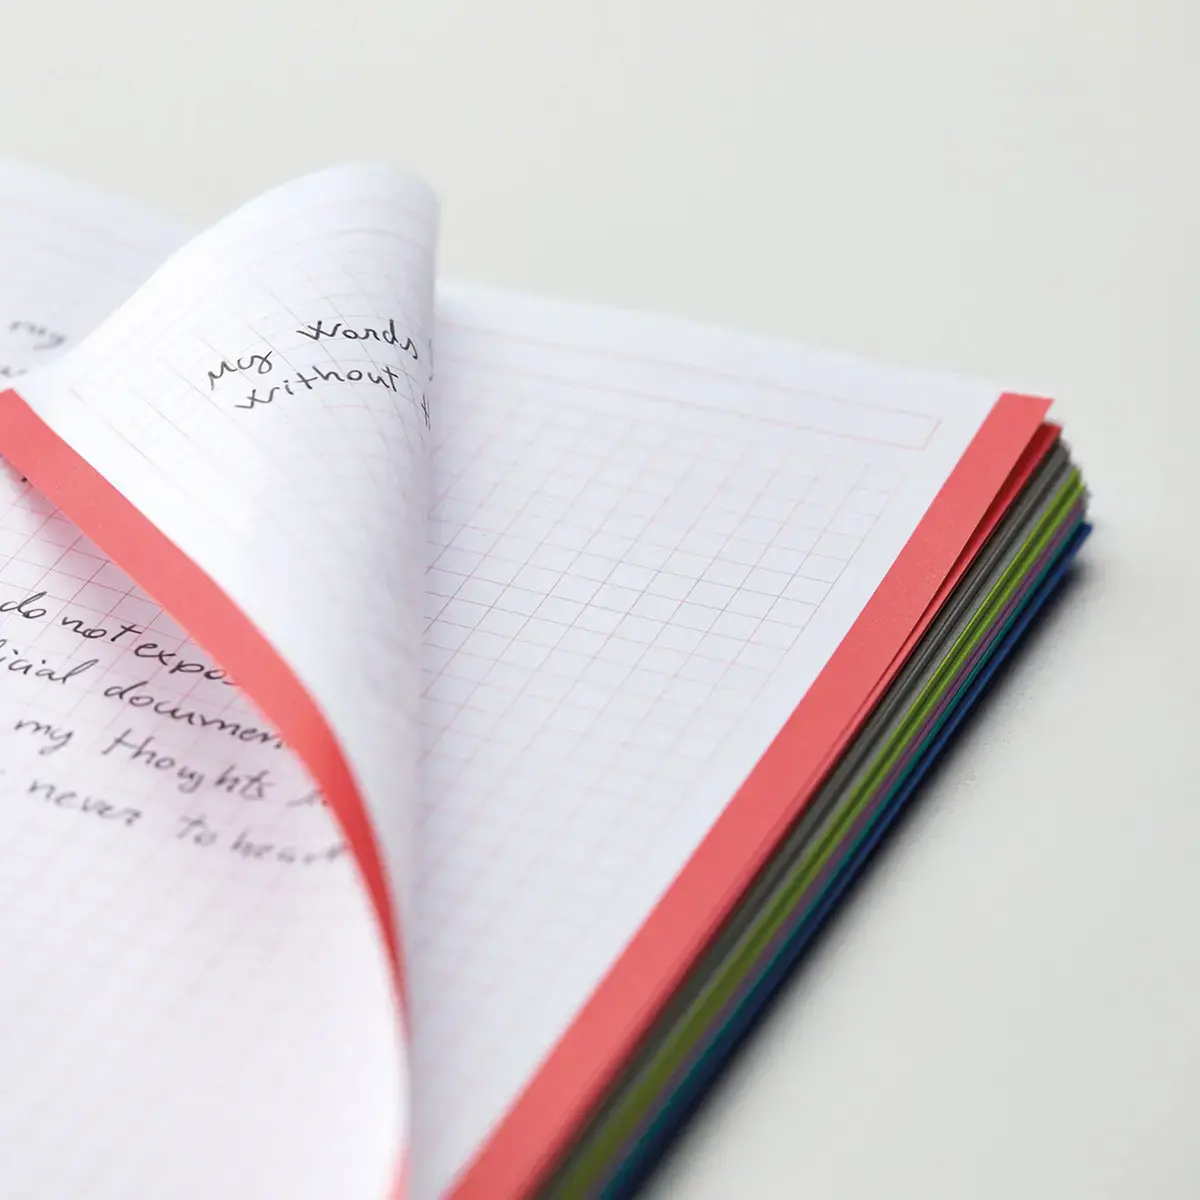 my
My words
without
do not expo
icial documen
my thoughts
never to hear